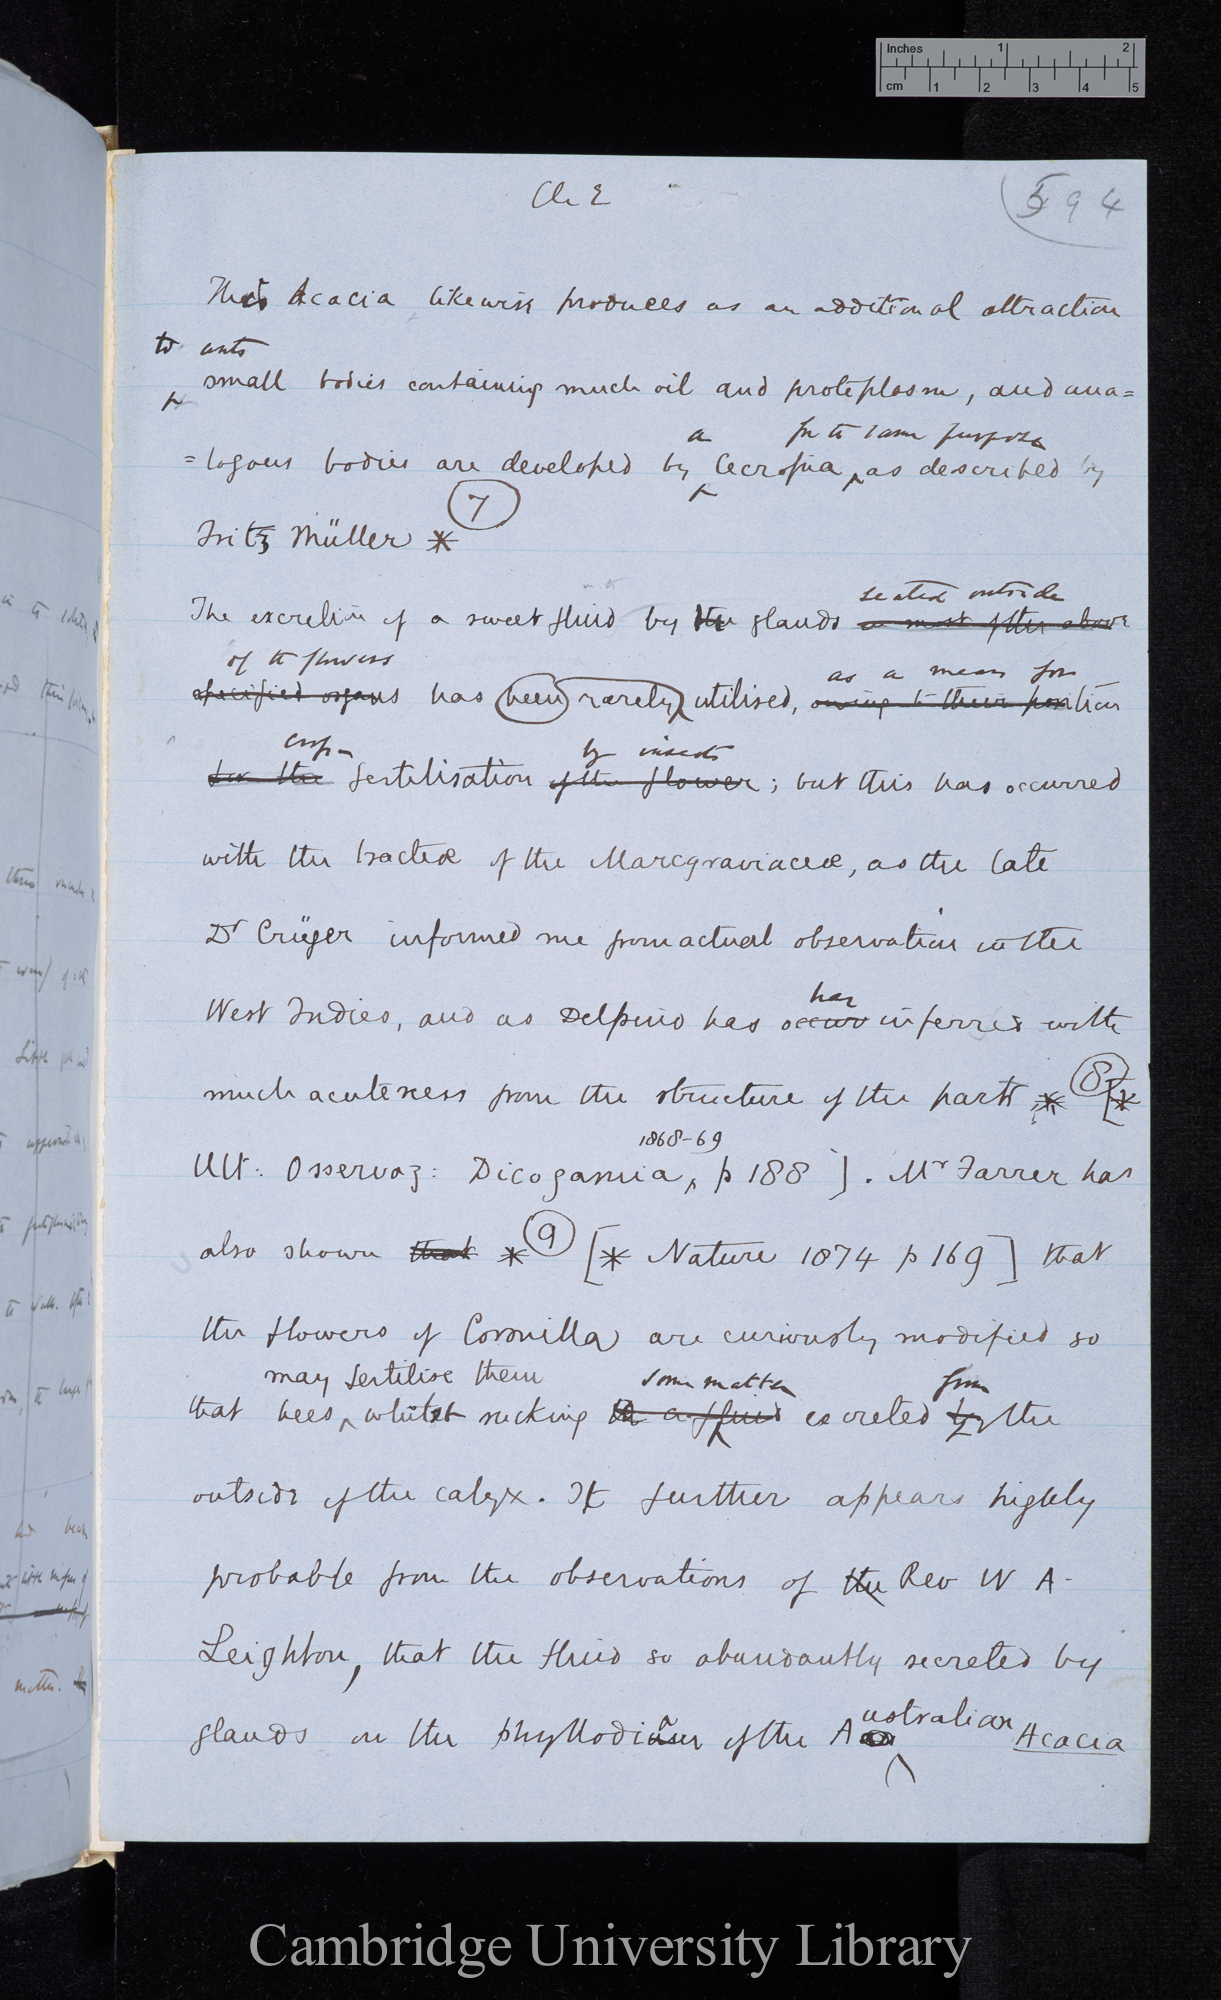 Inches 1 2
cm 1 2 3 4 5
Ch 2
594
This Acacia likewise produces as an additional attraction
to ants
small bodies containing much oil and protoplasm, and ana=
a for the same purpose
=logous bodies are developed by Cecropia, as described by
7
Fritz Müller *
seated outside
The excretion of a sweet fluid by the glands in most of the above
of the flowers as a means for
specified organs has been rarely utilised, owing to their position
cross- by insects
for the fertilisation of the flower; but this has occurred
with the bracteæ of the Marcgraviaceæ, as the late
Dr Crüger informed me from actual observation in the
has
West Indies, and as Delpino has occur inferred with
much acuteness from the structure of the parts * 8 [*
1868-69
Ult: Osservaz: Dicogamia, p 188 ]. Mr Farrer has
also shown that * 9 [* Nature 1874 p 169 ] that
the flowers of Coronilla are curiously modified so
may fertilise them some matter from
that bees, whilst sucking a fluid excreted by the
outside of the calyx. It further appears highly
probable from the observations of the Rev W A-
Leighton, that the fluid so abundantly secreted by
ustralian
glands on the phyllodia of the A Acacia
Cambridge University Library